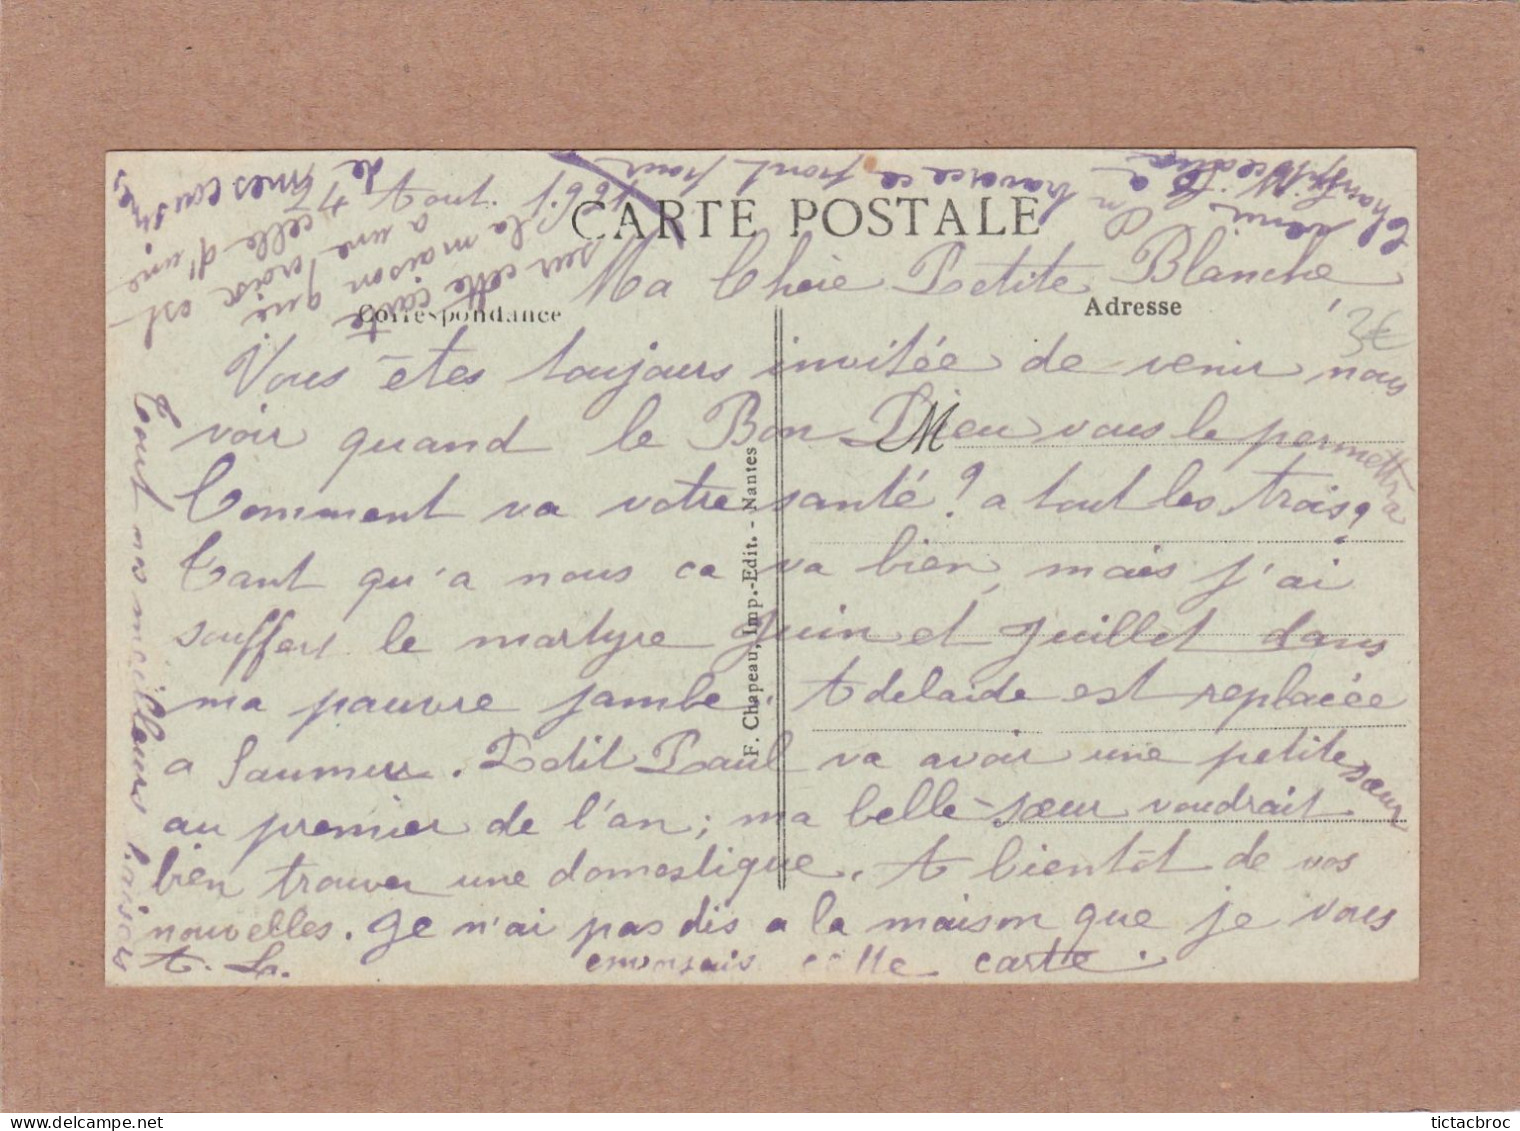 CARTE POSTALE
Correspondance
Adresse
3€
Ma Chère Petite Blanche,
Vous êtes toujours invitée de venir nous
voir quand le Bon Dieu vous le permettra
Comment va votre santé? a tout les trois?
Tant qu'a nous ca va bien, mais j'ai
souffert le martyre Juin et Juillet dans
ma pauvre jambe. Adelaide est replacée
a Saumur. Petit Paul va avoir une petite sœur
au premier de l'an; ma belle-sœur voudrait
bien trouver une domestique. A bientôt de vos
nouvelles. Je n'ai pas dis a la maison que je vous
envoyais cette carte.
A. L.
Tout mes meilleurs baisers
sur cette carte
la maison qui
a une croix est
celle d'une
de mes cousines
On traverse ce pont pour
venir
F. Chapeau, Imp.-Edit. - Nantes
M
tictacbroc